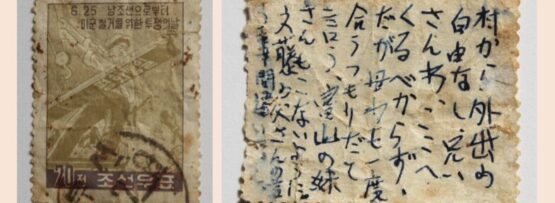 6.25 남조선으로부터
미군철거를위한투쟁의날
조선우표
村から外出の
自由なし、兄い
さんわ、ここへ
くるべからず、
だが母ワも一度
合うつもりだて
言う、山の妹
さんもこないように
お父さんの